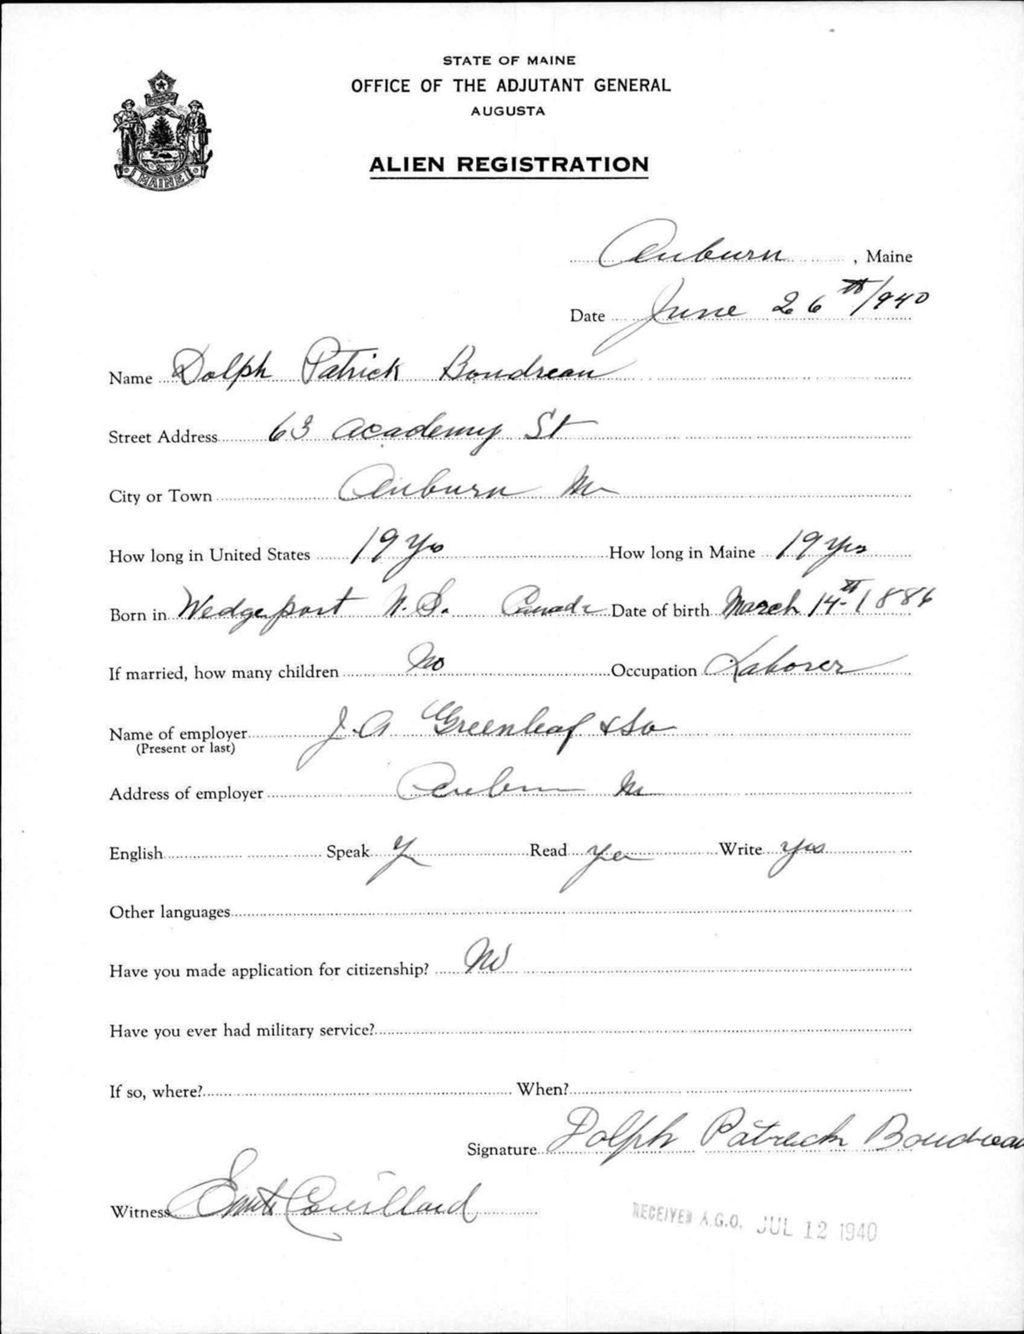 STATE OF MAINE
OFFICE OF THE ADJUTANT GENERAL
AUGUSTA
MAINE
ALIEN REGISTRATION
Auburn, Maine
Date June 26th 1940
Name Dolph Patrick Boudreau
Street Address 63 Academy St
City or Town Auburn Me
How long in United States 19 Yrs How long in Maine 19 Yrs
Born in Wedgeport N.S. Canada Date of birth March 14th 1886
If married, how many children No Occupation Laborer
Name of employer J.A Greenleaf & So
(Present or last)
Address of employer Auburn Me
English Speak Y Read Yes Write Yes
Other languages
Have you made application for citizenship? No
Have you ever had military service?
If so, where? When?
Signature Dolph Patrick Boudreau
Witness Couillard
RECEIVED A.G.O. JUL 12 1940